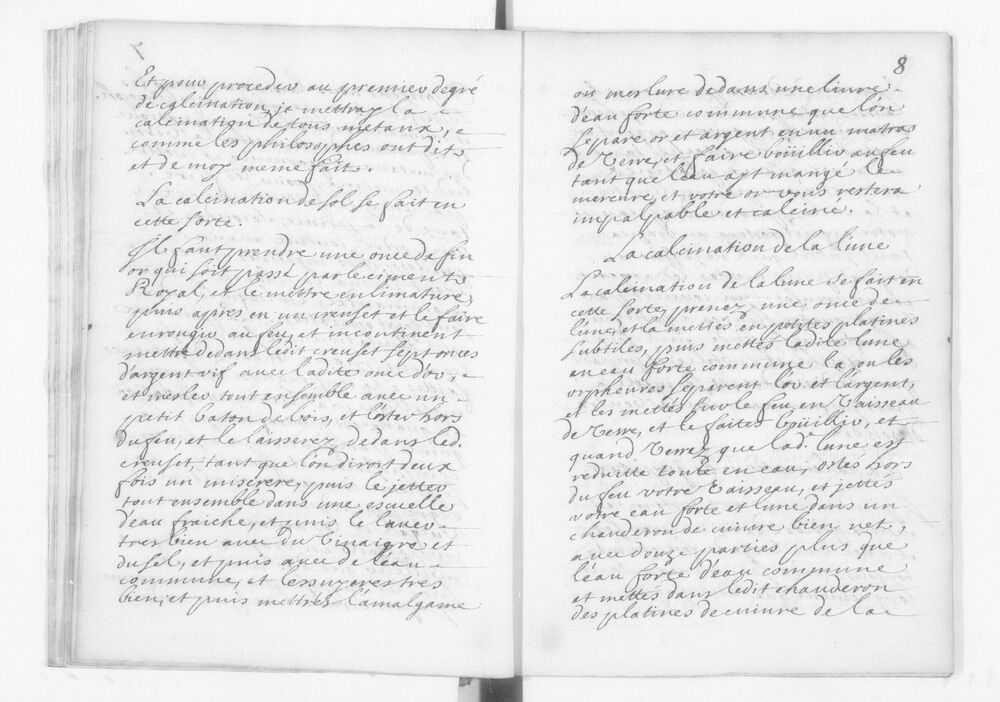 7
Et pour proceder au premier degré
de calcination, je mettray la
calcination de tous metaux,
comme les philosophes ont dit,
et de moy meme fait.
La calcination de sol se fait en
cette sorte.
Il faut prendre une once de fin
or qui soit passé par le ciment
Royal, et le mettre en limature,
puis apres en un creuset et le faire
enrougir au feu, et incontinent
mettre dedans ledit creuset sept onces
d'argent vif avec ladite once d'or,
et mesler tout ensemble avec un
petit baton de bois, et l'oster hors
du feu, et le laisserez dedans led.
creuset, tant que l'on diroit deux
fois un miserere, puis le jetter
tout ensemble dans une escuelle
d'eau fraiche, et puis le laver
tres bien avec du Vinaigre et
du sel, et puis avec de l'eau
commune, et l'essuyeres tres
bien, et puis mettrés l'amalgame
8
ou meslure dedans une livre
d'eau forte commune que l'on
separe or et argent en un matras
de Verre, et faire boüillir au feu
tant que l'eau ayt mangé le
mercure, et votre or vous restera
impalpable et calciné.
La calcination de la lune
La calcination de la lune se fait en
cette sorte, prenez une once de
lune, et la mettés en petites platines
subtiles, puis mettés ladite lune
en eau forte commune la ou les
orpheuros separent l'or et l'argent,
et les mettés sur le feu en Vaisseau
de Verre, et le faites boüillir, et
quand Verrez que lad. lune est
reduitte toute en eau, ostés hors
du feu votre Vaisseau, et jettés
votre eau forte et lune dans un
chauderon de cuivre bien net,
avec douze parties plus que
l'eau forte d'eau commune
et mettes dans ledit chauderon
des platines de cuivre de la